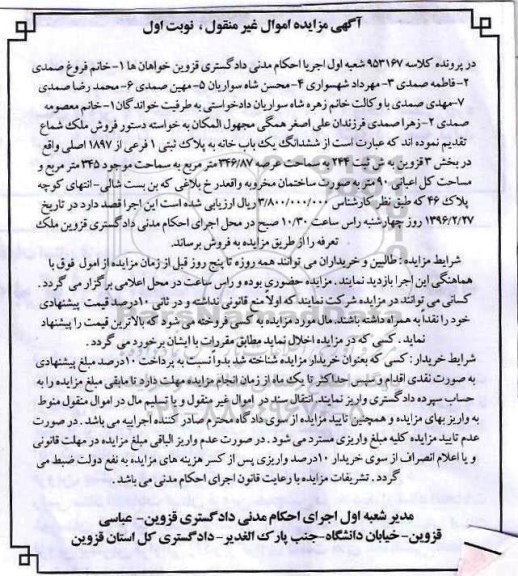 آگهی مزایده اموال غیر منقول ، نوبت اول
در پرونده کلاسه ۹۵۳۱۶۷ شعبه اول اجریا احکام مدنی دادگستری قزوین خواهان ها ۱-خانم فروغ صمدی
۲-فاطمه صمدی ۳- مهرداد شهسواری ۴-محسن شاه سواریان ۵-مهین صمدی ۶-محمد رضا صمدی
۷-مهدی صمدی با وکالت خانم زهره شاه سواریان دادخواستی به طرفیت خواندگان ۱-خانم معصومه
صمدی ۲-زهرا صمدی فرزندان علی اصغر همگی مجهول المکان به خواسته دستور فروش ملک شماع
تقدیم نموده اند که عبارت است از ششدانگ یک باب خانه به پلاک ثبتی ۱ فرعی از ۱۸۹۷ اصلی واقع
در بخش ۳ قزوین به ش ثبت ۲۴۴ به مساحت عرصه ۳۴۶/۸۷متر مربع به سماحت موجود ۳۴۵ متر مربع و
مساحت کل اعیانی ۹۰ متر به صورت ساختمان مخروبه واقعدر خ بلاغی که بن بست شالی-انتهای کوچه
پلاک ۴۶ که طبق نظر کارشناس ۳/۸۰۰/۰۰۰/۰۰۰ ریال ارزیابی شده است این اجرا قصد دارد در تاریخ
۱۳۹۶/۲/۲۷ روز چهارشنبه راس ساعت ۱۰/۳۰ صبح در محل اجرای احکام مدنی دادگستری قزوین ملک
تعرفه را از طریق مزایده به فروش برساند.
شرایط مزایده : طالبین و خریداران می توانند همه روزه تا پنج روز قبل از زمان مزایده از امول فوق با
هماهنگی این اجرا بازدید نمایند . مزایده حضوری بوده و راس ساعت در محل اعلامی برگزار می گردد .
کسانی می توانند در مزایده شرکت نمایند که اولا منع قانونی نداشته و در ثانی ۱۰درصد قیمت پیشنهادی
خود را نقداً به همراه داشته باشند. مال مورد مزایده به کسی فروخته می شود که بالاترین قیمت را پیشنهاد
نماید . کسی که در مزایده اخلال نماید مطابق مقررات با ایشان برخورد می گردد .
شرایط خریدار : کسی که بعنوان خریدار مزایده شناخته شید بدواً به پرداخت ۱۰درصد مبلغ پیشنهادی
به صورت نقدی اقدام و سپس حداکثر تا یک ماه از زمان انجام مزایده مهلت دارد تا مابقی مبلغ مزایده را به
حساب سپرده دادگستری واریز نمایند. انتقال سند در اموال غیر منقول و یا تسلیم مال در اموال منقول منوط
به واریز بهای مزایده و همچنین تایید مزایده از سوی دادگاه محترم صادر کننده اجراییه می باشد . در صورت
عدم تایید مزایده کلیه مبلغ واریزی مسترد می شود . در صورت عدم واریز الباقی مبلغ مزایده در مهلت قانونی
و یا اعلام انصراف از سوی خریدار ۱۰درصد واریزی پس از کسر هزینه های مزایده به نفع دولت ضبط می
گردد . تشریفات مزایده با رعایت قانون اجرای احکام مدنی می باشد .
مدیر شعبه اول اجرای احکام مدنی دادگستری قزوین- عباسی
قزوین-خیابان دانشگاه-جنب پارک الغدیر-دادگستری کل استان قزوین